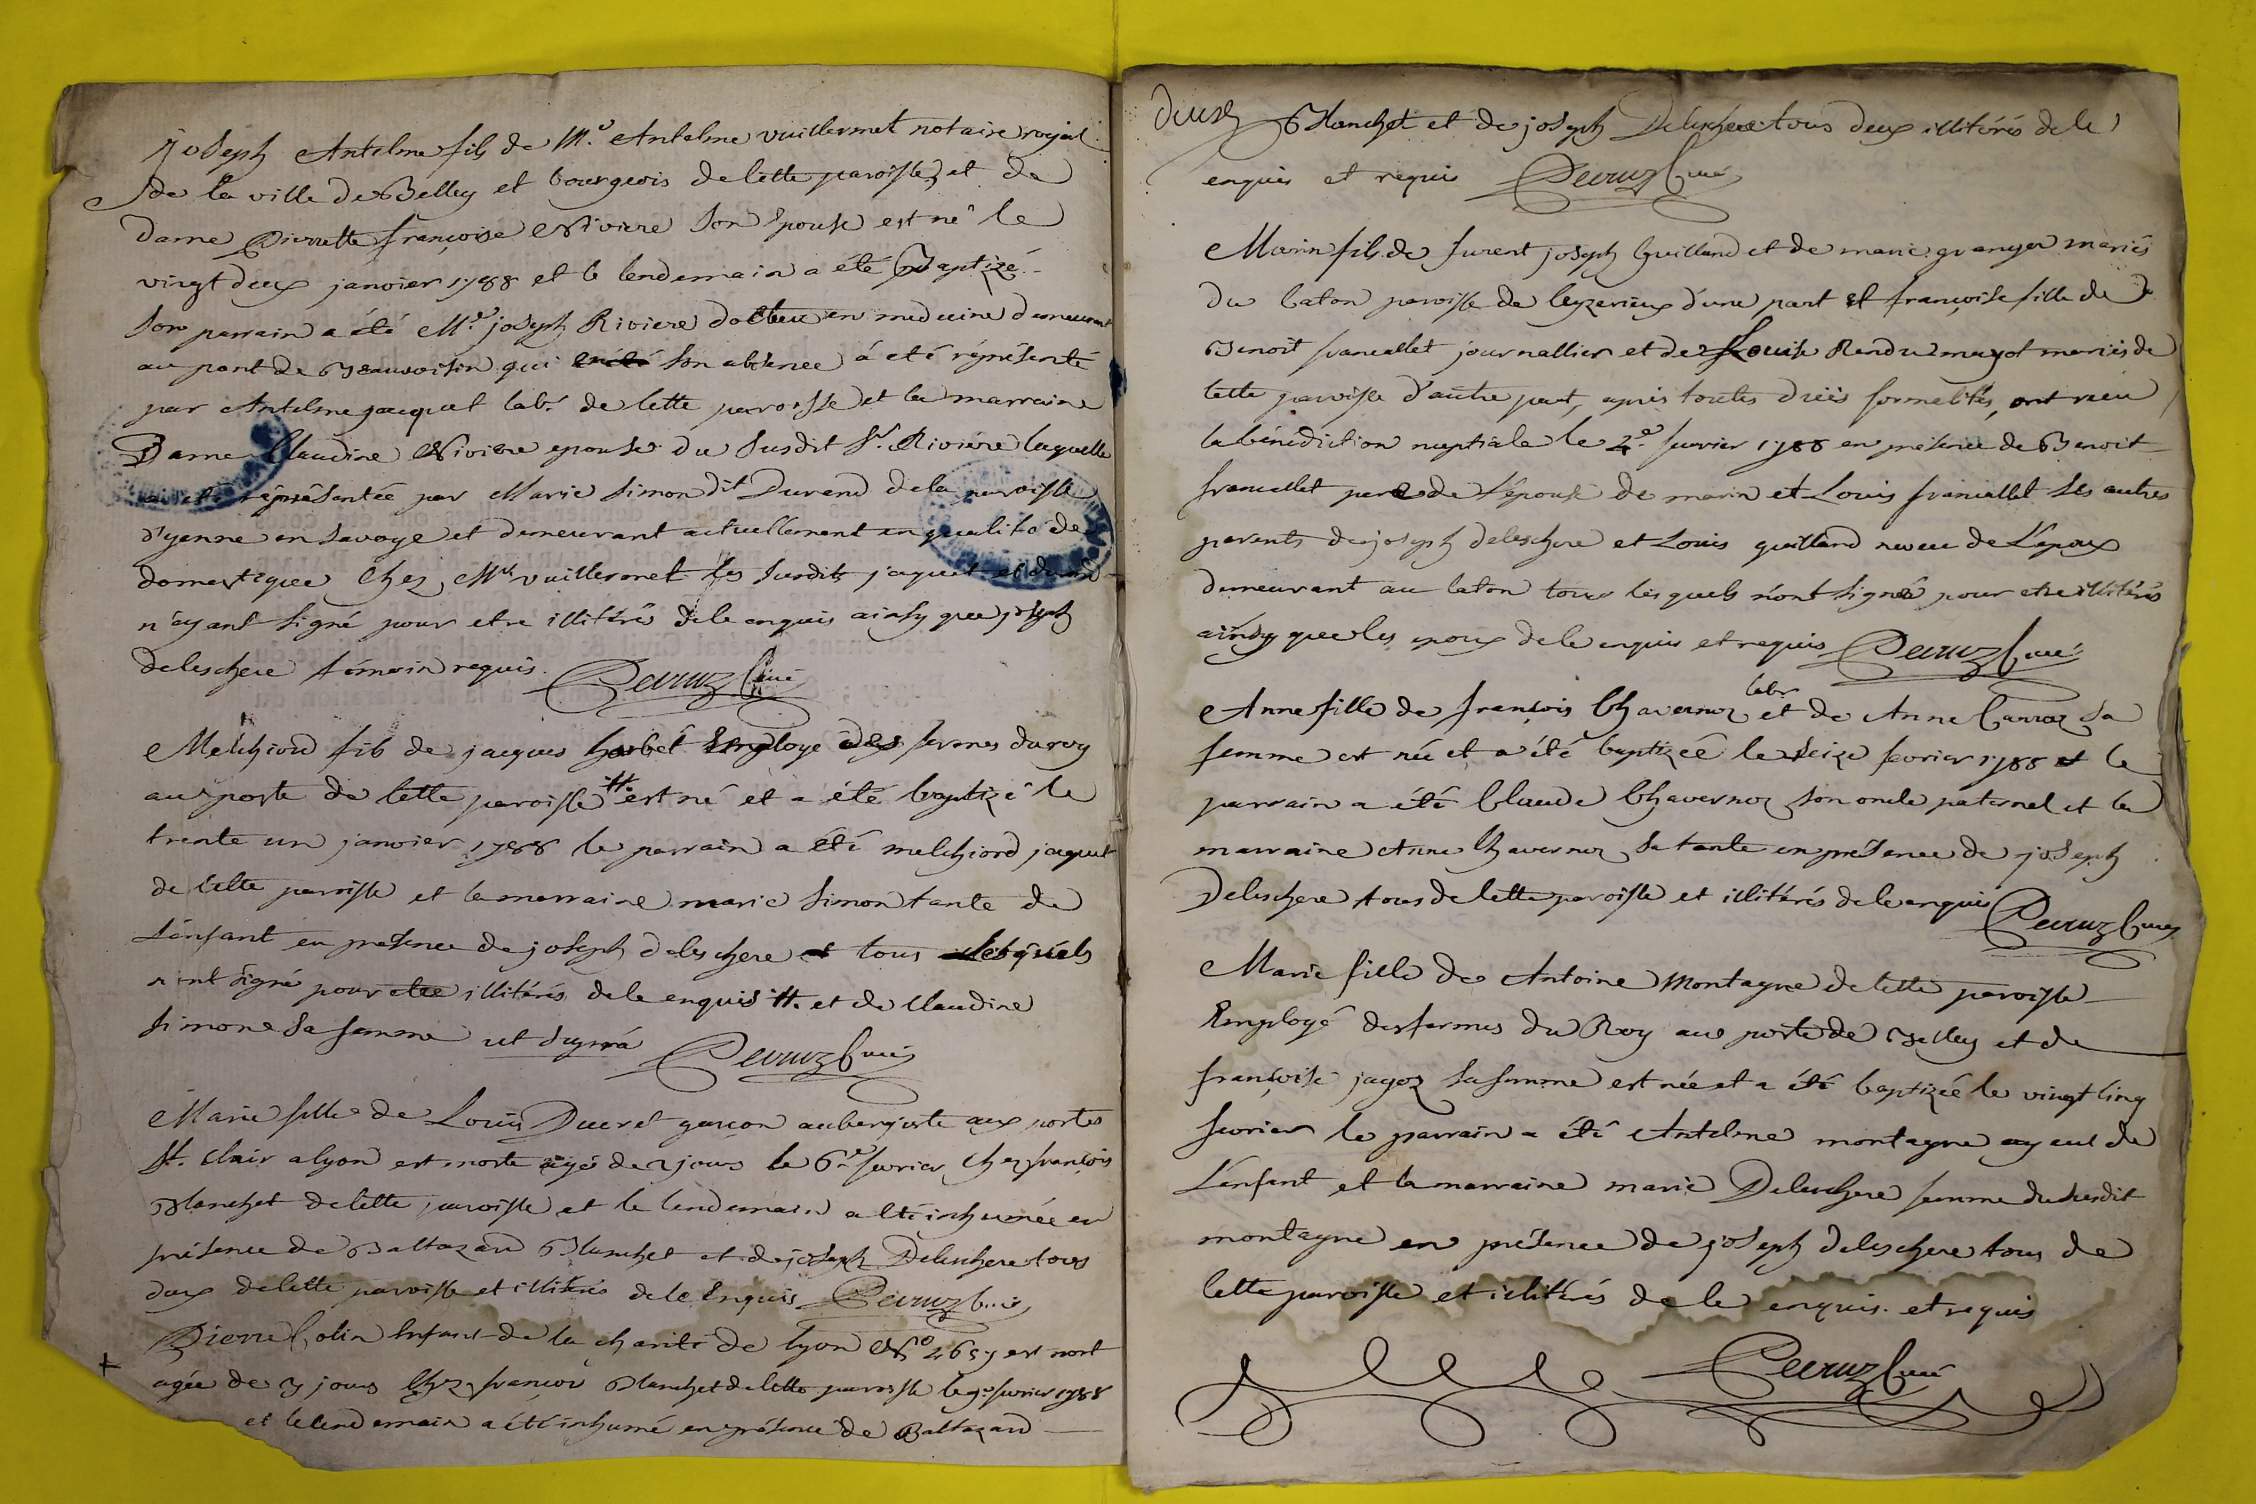 joseph Antelme fils de M.e Antelme vuillermet notaire royal
de la ville de Belley et bourgeois de cette paroisse, et de
dame Pierrette françoise Riviere son epouse est né le
vingt deux janvier 1788 et le lendemain a été Baptizé
son parrain a été M.e joseph Riviere docteur en medecine demeurant
au pont de Beauvoisin qui son absence á eté réprésenté
par Antelme jacquet lab.r de cette paroisse et la marraine
Dame Claudine Riviere epouse du susdit S.r Riviére laquelle
a été réprésentée par Marie simon dit Durand de la paroisse
d'yenne en savoye et demeurant actuellement en qualité de
domestique chez M.e vuillermet les susdits jaquet et durand
n'ayant signé pour etre illitérés de le enquis ainsy que joseph
deleschere témoin requis. Perruz Curé
Melchiord fils de jacques employe des fermes du roy
au poste de cette paroisse # est né et a été baptizé le
trente un janvier 1788 le parrain a été melchiord jaquet
de cette paroisse et la marraine marie simon tante de
L'enfant en présence de joseph deleschere et tous lesquels
n'ont signé pour etre illitérés de le enquis # et de Claudine
simone sa femme ut supra Perruz Curé
Marie fille de Louis Ducret garçon aubergiste aux portes
St. Clair a lyon est morte agée de 2 jours le 6.e fevrier chez françois
Blanchet de cette paroisse et le lendemain a eté inhumée en
présence de Baltazard Blanchet et de joseph Deleschere tous
deux de cette paroisse et illitérés de le Enquis Perruz Curé
Pierre Colin Enfant de la charité de lyon N.o 4657 est mort
agée de jours chez françois Blanchet de cette paroisse le 9.e fevrier 1788
et le lendemain a été inhumé en présence de Baltazard
deux Blanchet et de joseph Deleschere tous deux illitérés de le
enquis et requis Perruz Curé
Marin fils de jurent joseph Guilland et de marie granger mariés
du caton paroisse de leyzerieux d'une part et françoise fille de
Benoit francallet journallier et de Louise Rendu mugot mariés de
cette paroisse d'autre part, apres toutes formalités, ont
la bénédiction nuptiale le 4.e fevrier 1788 en présence de Benoit
francallet pere de L'epouse de marin et Louis francallet ses autres
parents de joseph deleschere et Louis guilland neveu de L'epoux
demeurant au caton tous lesquels n'ont signé pour etre illitérés
ainsy que les epoux de le enquis et requis Perruz Curé
Anne fille de françois Chavernoz labr et de Anne Carroz sa
femme est née et a été baptizée le seize fevrier 1788 et le
parrain a été Claude Chavernoz son oncle paternel et la
marraine Anne Chavernoz sa tante en présence de joseph
Deleschere tous de cette paroisse et illitérés de le enquis Perruz Curé
Marie fille de Antoine Montagne de cette paroisse
Employé des fermes du Roy au poste de Belley et de
françoise jagoz sa femme est née et a été baptizée le vingt cinq
fevrier le parrain a été Antelme montagne ayeul de
L'enfant et la marraine marie Deleschere femme du susdit
montagne en présence de joseph deleschere tous de
cette paroisse et illitérés de le enquis. et requis
Perruz Curé